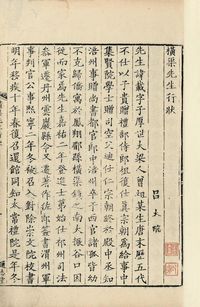 橫渠先生行狀
呂大臨
先生諱載字子厚世大梁人曾祖某生唐末歷五代
不仕以子貴贈禮部侍郎祖復仕真宗朝為給事中
集賢院學士贈司空父迪仕仁宗朝終於殿中丞知
涪州事贈尚書都官郎中涪州卒于西官諸孤皆幼
不克歸僑寓於鳳翔郿縣橫渠鎮之南大振谷口因
徙而家焉先生嘉祐二年登進士第始仕祁州司法
參軍遷丹州雲巖縣令又遷著作佐郎簽書渭州軍
事判官公事熙寧二年冬被召入對除崇文院校書
明年移疾十年春復召還館同知太常禮院是年冬